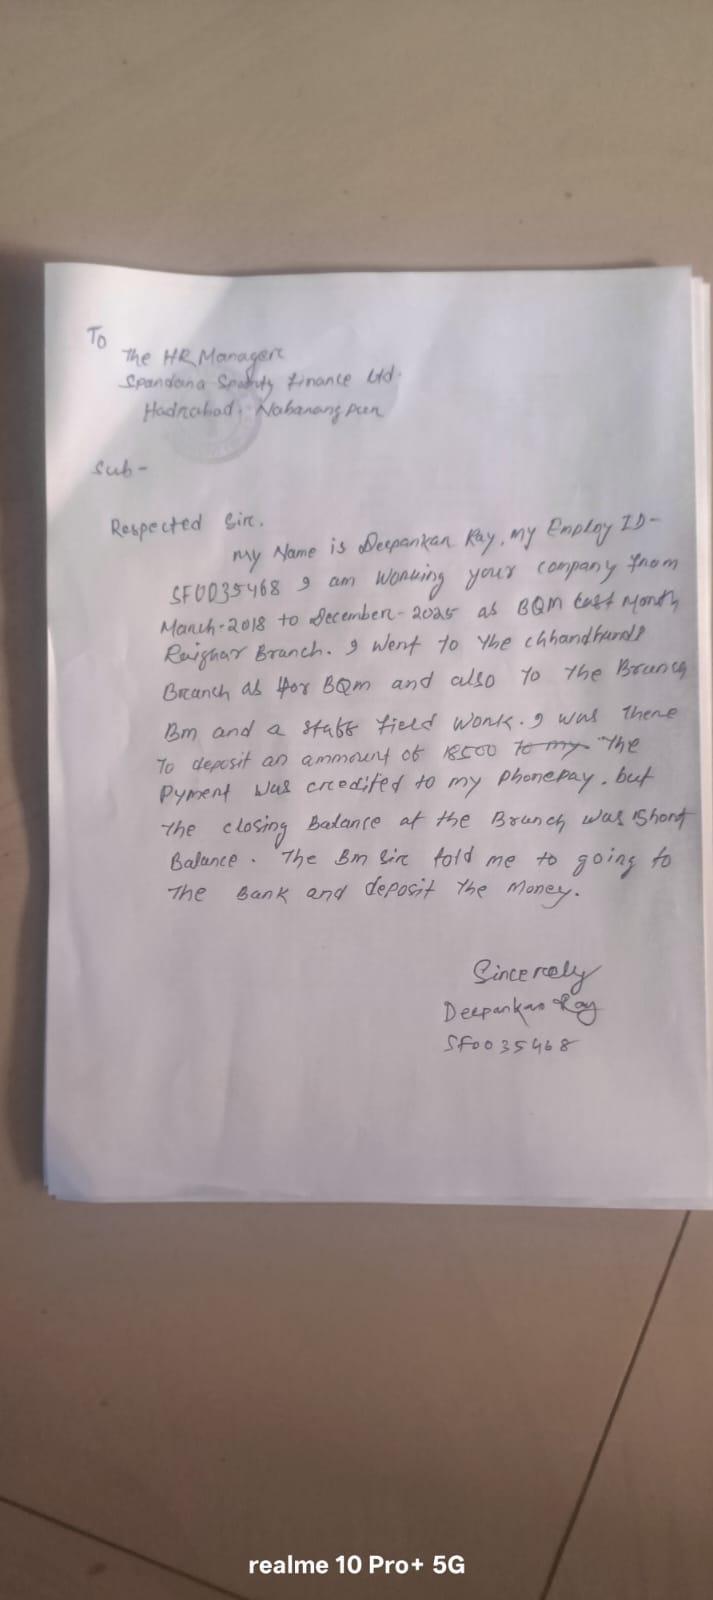 To
The HR Manager
Spandana Sphurty Finance Ltd.
Hadrabad, Nabarangpur
Sub-
Respected Sir.
My Name is Deepankar Ray, my Employ ID-
SF0035468 I am working your company from
March-2018 to December-2025 as BQM Last Month
Raighar Branch. I went to the chhandhundi
Branch as for BQM and also to the Branch
Bm and a staff field work. I was there
To deposit an ammount of 18500 to my The
Pyment was credited to my Phonepay. but
the closing Balance at the Branch was Short
Balance. The Bm Sir told me to going to
The Bank and deposit the Money.
Sincerely
Deepankar Ray
SF0035468
realme 10 Pro+ 5G